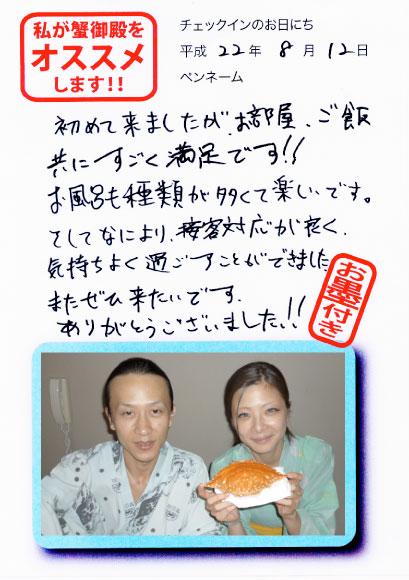 私が蟹御殿を
オススメ
します!!
チェックインのお日にち
平成 22年 8月 12日
ペンネーム
初めて来ましたが、お部屋、ご飯
共にすごく満足です!!
お風呂も種類が多くて楽しいです。
そしてなにより、接客対応が良く、
気持ちよく過ごすことができました
またぜひ来たいです。
ありがとうございました!!
お墨付き